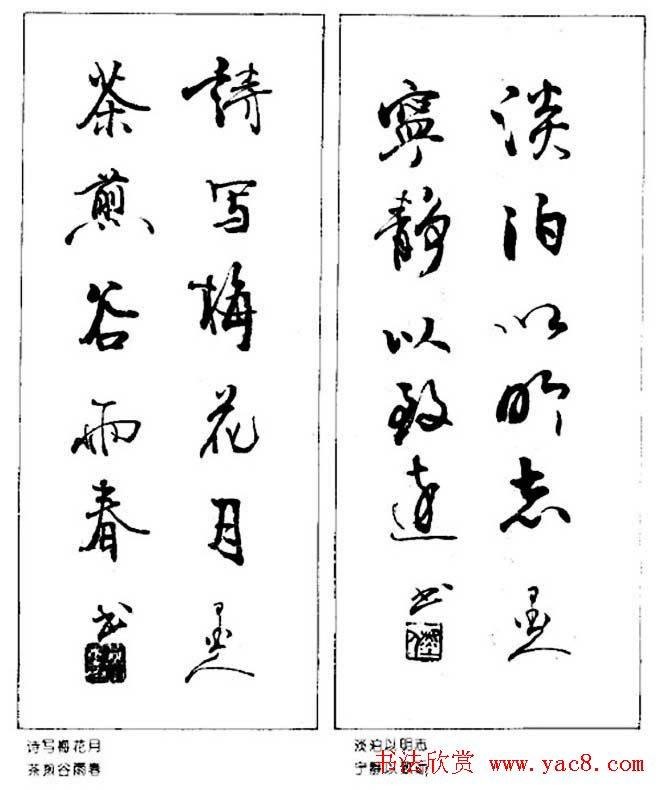 淡泊以明志 墨人
寧静以致遠 书
詩写梅花月 墨人
茶煎谷雨春 书
诗写梅花月
茶煎谷雨春
淡泊以明志
宁静以致远
书法欣赏 www.yac8.com